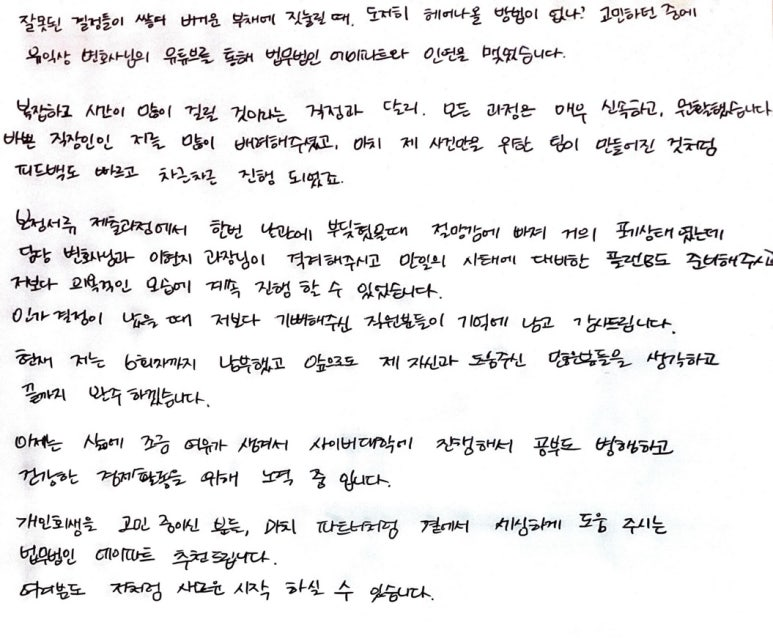 잘못된 결정들이 쌓여 버거운 부채에 짓눌릴 때, 도저히 헤어나올 방법이 없나? 고민하던 중에
윤익상 변호사님의 유튜브를 통해 법무법인 에이파트와 인연을 맺었습니다.
복잡하고 시간이 많이 걸릴 것이라는 걱정과 달리, 모든 과정은 매우 신속하고, 원활했습니다
바쁜 직장인인 저를 많이 배려해주셨고, 마치 제 사건만을 위한 팀이 만들어진 것처럼
피드백도 빠르고 차근차근 진행 되었죠.
보정서류 제출과정에서 한번 난관에 부딪혔을때 절망감에 빠져 거의 포기상태 였는데
담당 변호사님과 이현지 과장님이 격려해주시고 만일의 사태에 대비한 플랜B도 준비해주시고
저보다 의욕적인 모습에 계속 진행 할 수 있었습니다.
인가 결정이 났을 때 저보다 기뻐해주신 직원분들이 기억에 남고 감사드립니다.
현재 저는 6회차까지 납부했고 앞으로도 제 자신과 도움주신 직원분들을 생각하고
끝까지 완주 하겠습니다.
이제는 삶에 조금 여유가 생겨서 사이버대학에 진행해서 공부도 병행하고
건강한 경제활동을 위해 노력 중 입니다.
개인회생을 고민 중이신 분들, 마치 파트너처럼 곁에서 세심하게 도움 주시는
법무법인 에이파트 추천드립니다.
여러분도 저처럼 새로운 시작 하실 수 있습니다.